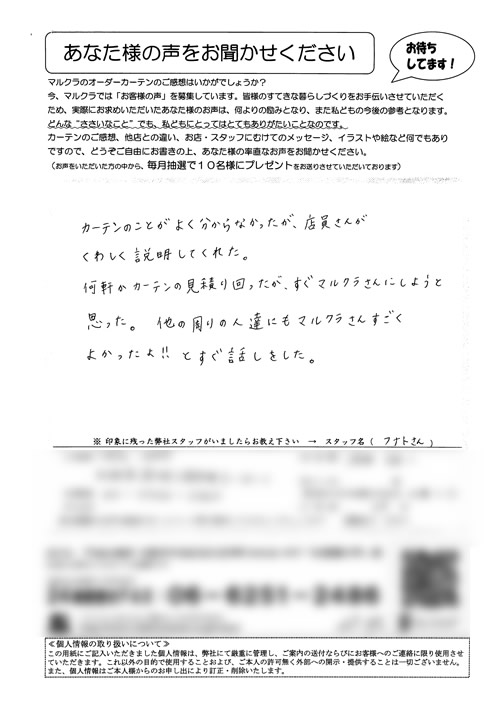 あなた様の声をお聞かせください
お待ち
してます！
マルクラのオーダーカーテンのご感想はいかがでしょうか？
今、マルクラでは「お客様の声」を募集しています。皆様のすてきな暮らしづくりをお手伝いさせていただく
ため、実際にお求めいただいたあなた様のお声は、何よりの励みとなり、また私どもの今後の参考となります。
どんな“ささいなこと”でも、私どもにとってはとてもありがたいことなのです。
カーテンのご感想、他店との違い、お店・スタッフにむけてのメッセージ、イラストや絵など何でもあり
ですので、どうぞご自由にお書きの上、あなた様の率直なお声をお聞かせください。
（お声をいただいた方の中から、毎月抽選で１０名様にプレゼントをお送りさせていただいております）
カーテンのことがよく分からなかったが、店員さんが
くわしく説明してくれた。
何軒かカーテンの見積り回ったが、すぐマルクラさんにしようと
思った。 他の周りの人達にもマルクラさんすごく
よかったよ!! とすぐ話しをした。
※ 印象に残った弊社スタッフがいましたらお教え下さい → スタッフ名（ フナトさん ）
≪個人情報の取り扱いについて≫
この用紙にご記入いただきました個人情報は、弊社にて厳重に管理し、ご案内の送付ならびにお客様へのご連絡に限り使用させ
ていただきます。これ以外の目的で使用することおよび、ご本人の許可無く外部への開示・提供することは一切ございません。
また、個人情報はご本人様からのお申し出により訂正・削除いたします。